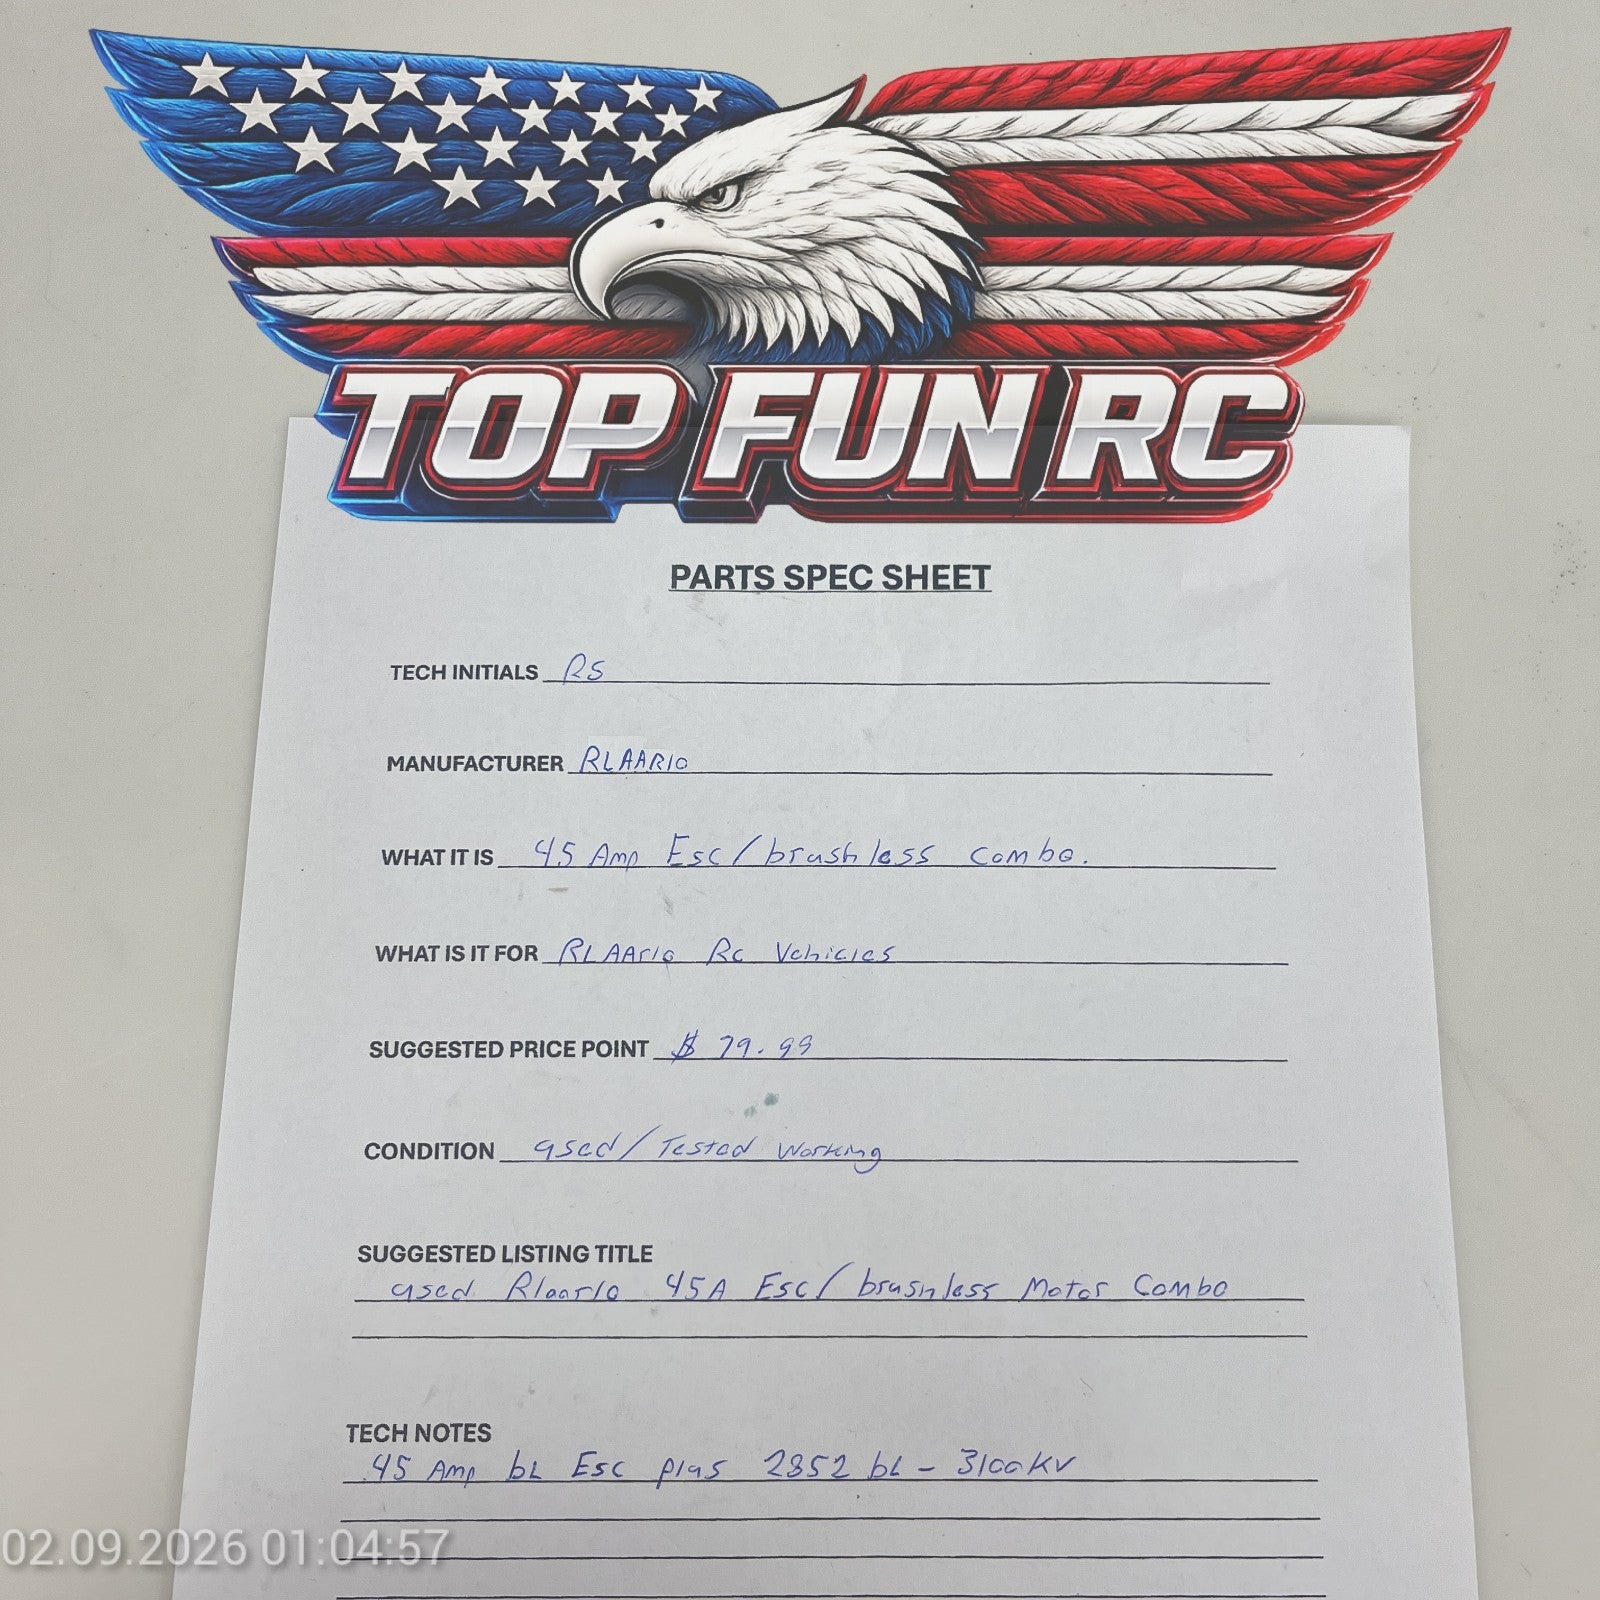 TOP FUN RC
PARTS SPEC SHEET
TECH INITIALS RS
MANUFACTURER RLAARlO
WHAT IT IS 45 Amp Esc/brushless combo.
WHAT IS IT FOR RLAArlo Rc Vehicles
SUGGESTED PRICE POINT $ 79.99
CONDITION used/Tested Working
SUGGESTED LISTING TITLE
used Rlaarlo 45A Esc/brushless Motor Combo
TECH NOTES
45 Amp bL Esc plus 2852 bL - 3100KV
02.09.2026 01:04:57